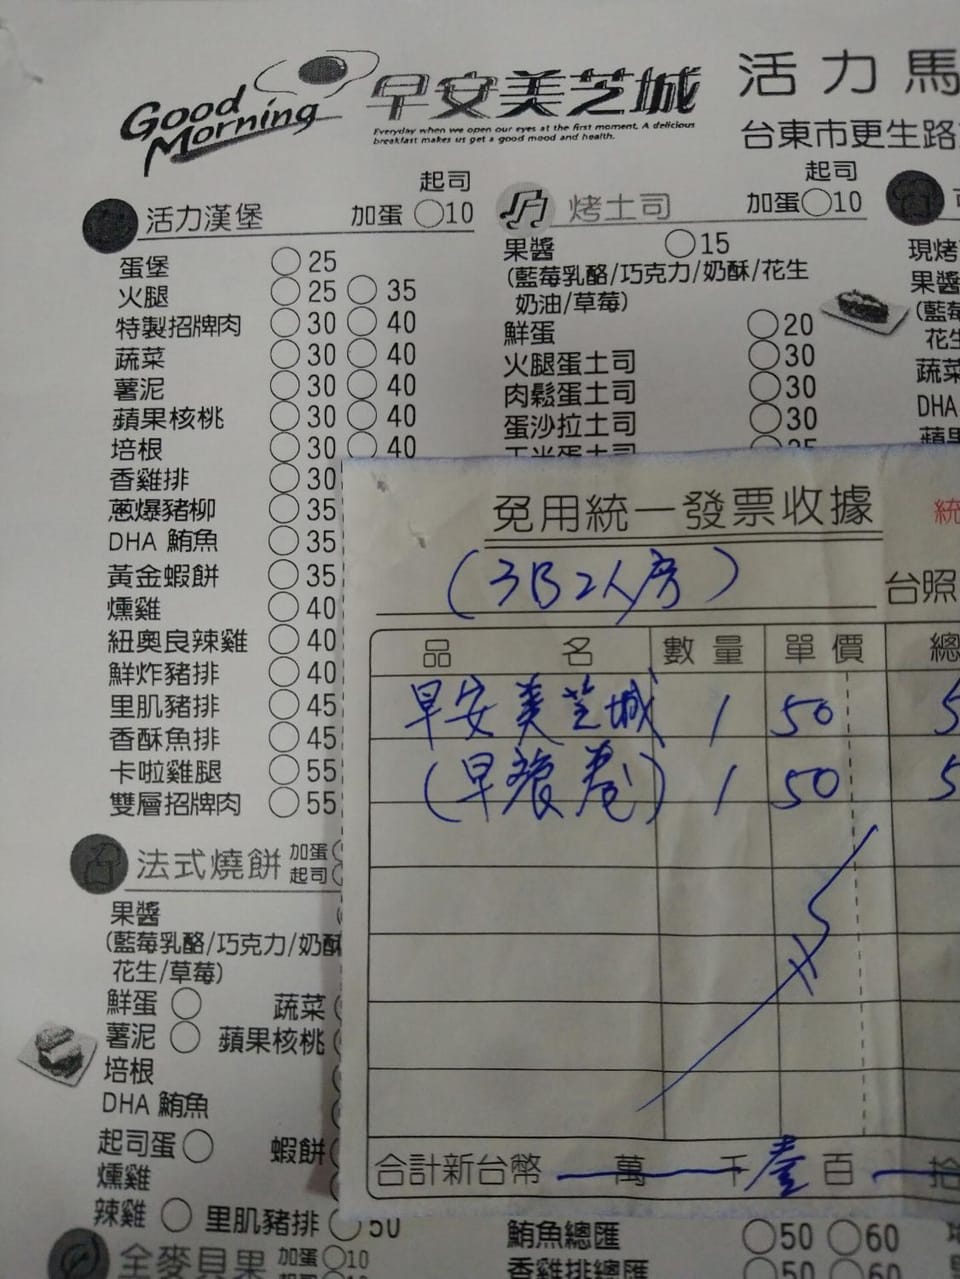 Good Morning
早安美芝城
Everyday when we open our eyes at the first moment, A delicious
breakfast makes us get a good mood and health.
活力馬
台東市更生路
活力漢堡 起司
加蛋 ○10
蛋堡 ○25
火腿 ○25 ○35
特製招牌肉 ○30 ○40
蔬菜 ○30 ○40
薯泥 ○30 ○40
蘋果核桃 ○30 ○40
培根 ○30 ○40
香雞排 ○30
蔥爆豬柳 ○35
DHA 鮪魚 ○35
黃金蝦餅 ○35
燻雞 ○40
紐奧良辣雞 ○40
鮮炸豬排 ○40
里肌豬排 ○45
香酥魚排 ○45
卡啦雞腿 ○55
雙層招牌肉 ○55
法式燒餅 加蛋
起司
果醬
(藍莓乳酪/巧克力/奶酥
花生/草莓)
鮮蛋 ○ 蔬菜
薯泥 ○ 蘋果核桃
培根
DHA 鮪魚
起司蛋 ○ 蝦餅
燻雞
辣雞 ○ 里肌豬排 ○50
全麥貝果 加蛋 ○10
烤土司 起司
加蛋○10
果醬 ○15
(藍莓乳酪/巧克力/奶酥/花生
奶油/草莓)
鮮蛋 ○20
火腿蛋土司 ○30
肉鬆蛋土司 ○30
蛋沙拉土司 ○30
現烤
果醬
(藍莓
花生
蔬菜
DHA
蘋果
免用統一發票收據
統
(3B2人房)
台照
品名 數量 單價 總
早安美芝城 1 50 5
(早餐卷) 1 50 5
合計新台幣 萬 千 壹 百 拾
鮪魚總匯 ○50 ○60
香雞排總匯 ○50 ○60